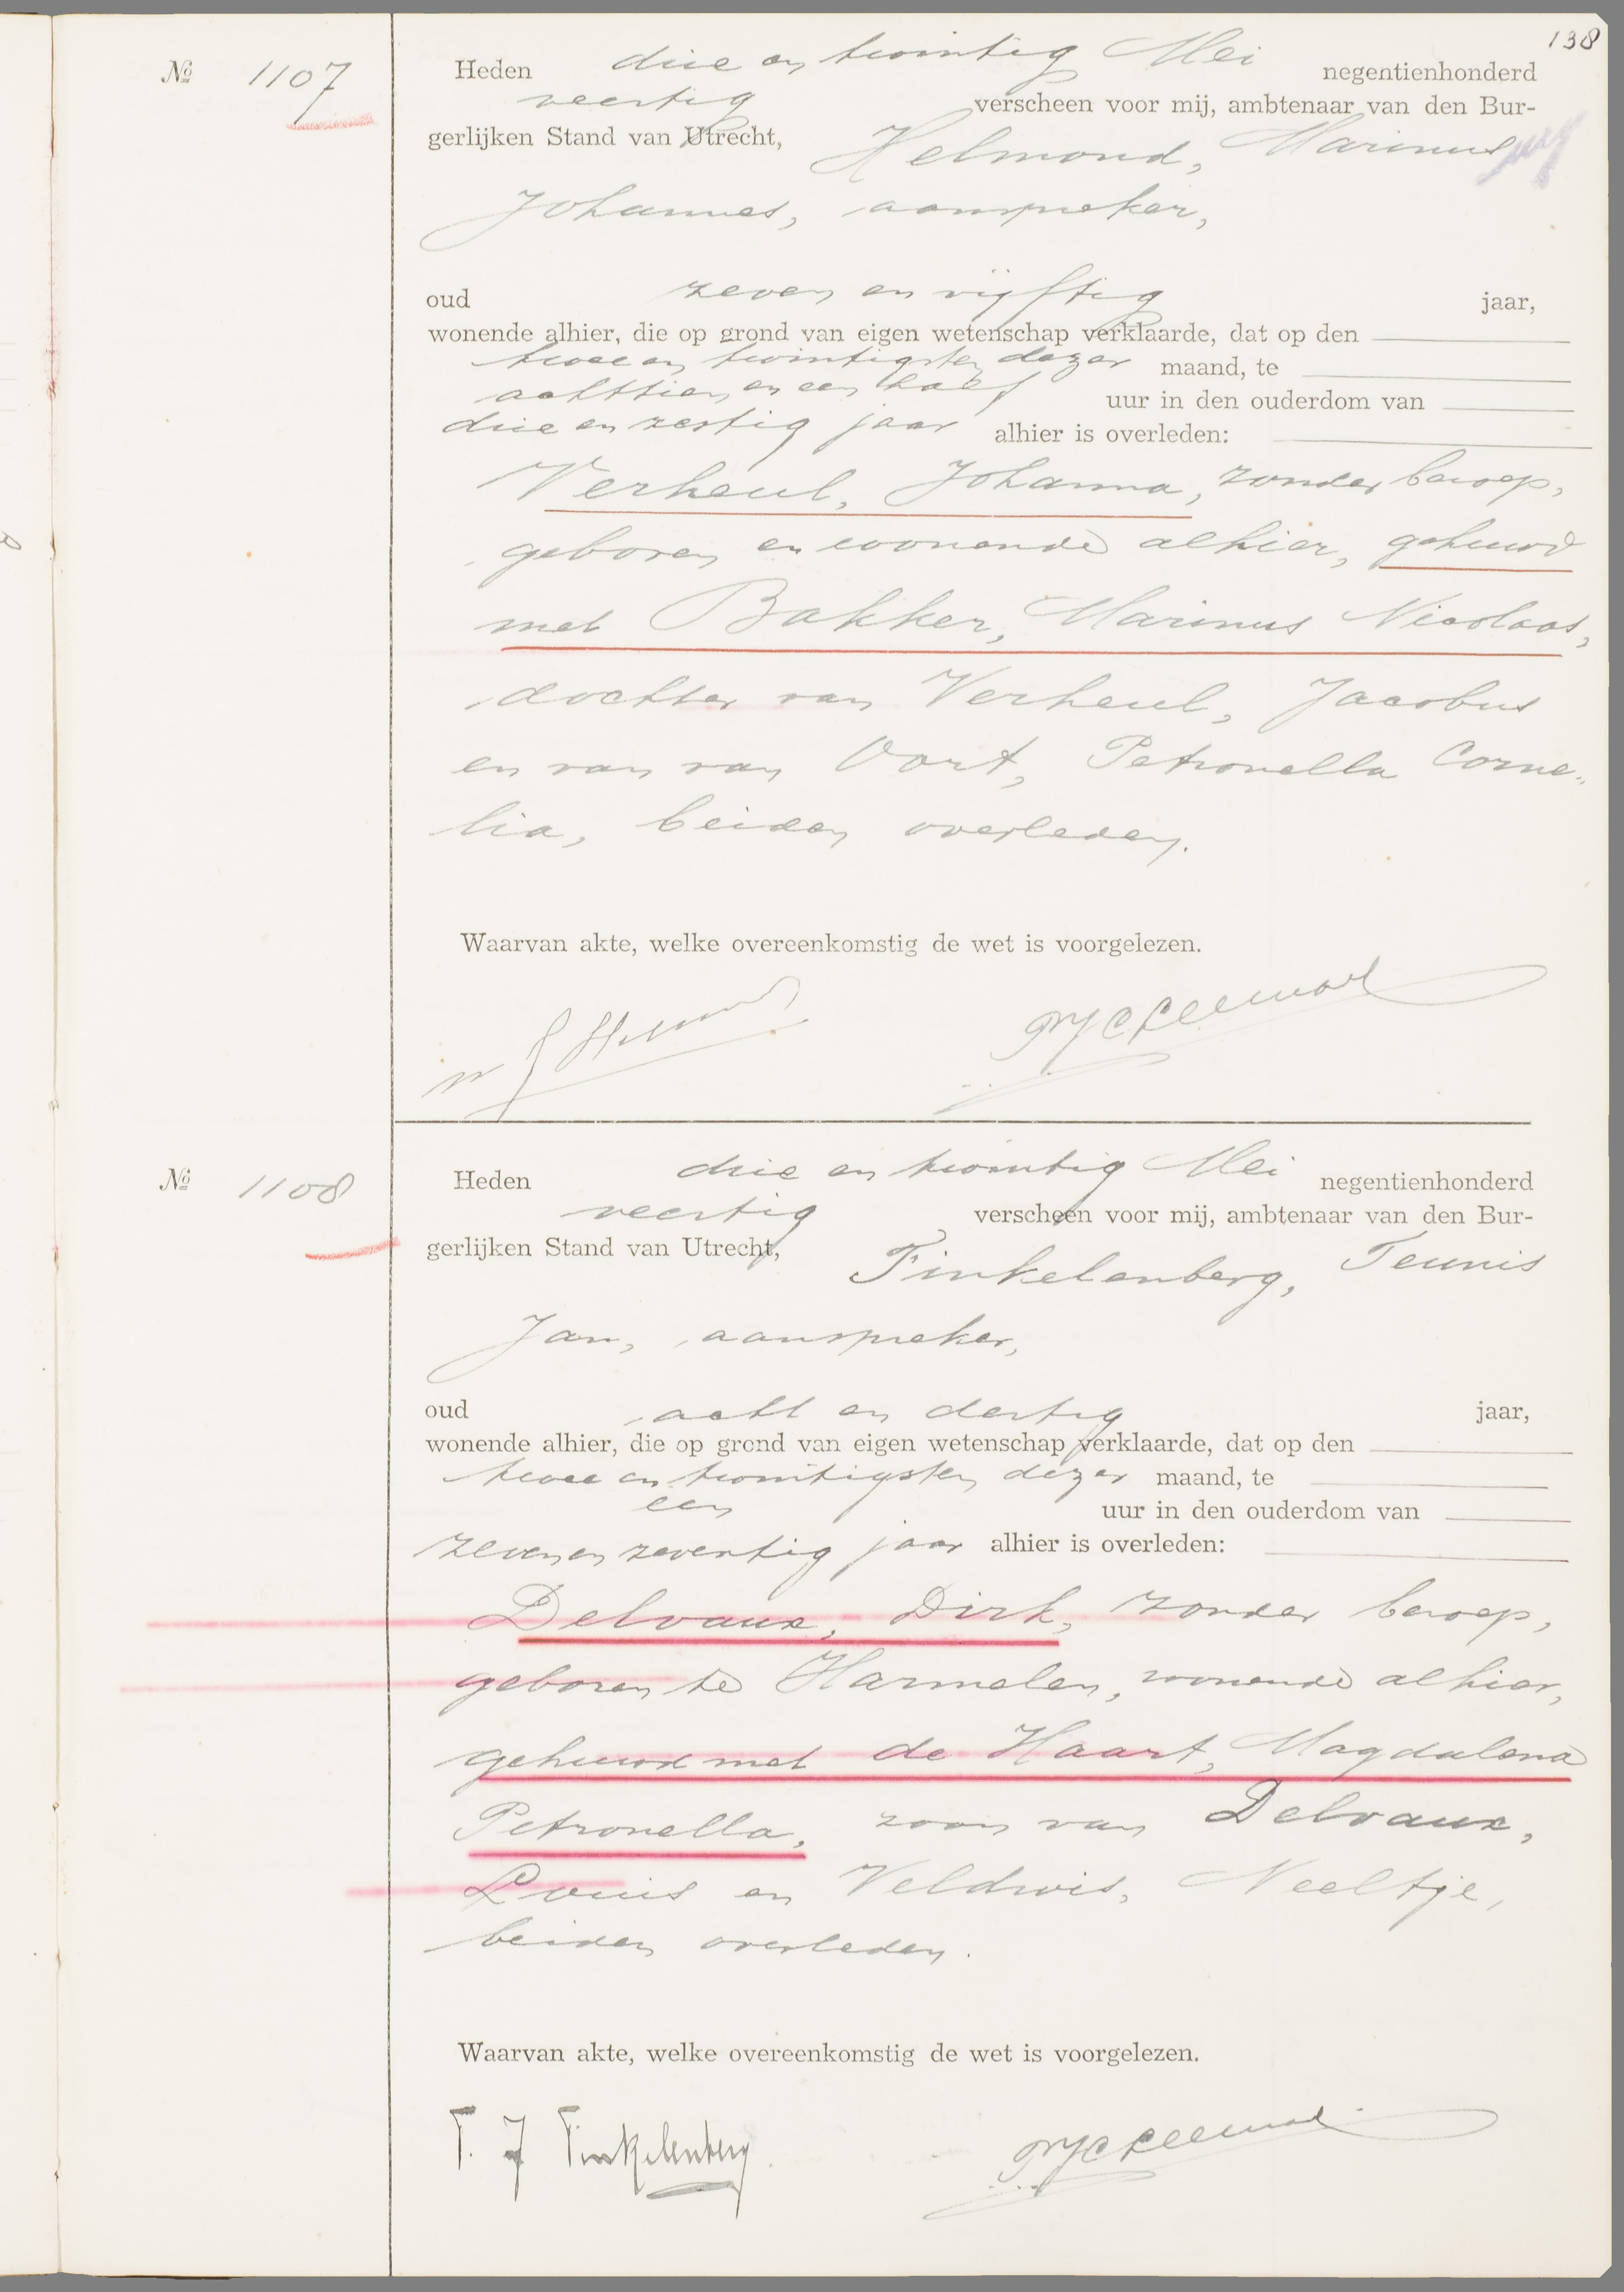 138
№ 1107
Heden drie en twintig Mei negentienhonderd
veertig verscheen voor mij, ambtenaar van den Bur-
gerlijken Stand van Utrecht, Helmond, Marinus
Johannes, aanspreker,
oud zeven en vijftig jaar,
wonende alhier, die op grond van eigen wetenschap verklaarde, dat op den
twee en twintigsten dezer maand, te
achttien en een half uur in den ouderdom van
drie en zestig jaar alhier is overleden:
Verheul, Johanna, zonder beroep,
geboren en wonende alhier, gehuwd
met Bakker, Marinus Nicolaas,
dochter van Verheul, Jacobus
en van van Oort, Petronella Corne„
lia, beiden overleden.
Waarvan akte, welke overeenkomstig de wet is voorgelezen.
№ 1108
Heden drie en twintig Mei negentienhonderd
veertig verscheen voor mij, ambtenaar van den Bur-
gerlijken Stand van Utrecht, Finkelenberg, Teunis
Jan, aanspreker,
oud acht en dertig jaar,
wonende alhier, die op grond van eigen wetenschap verklaarde, dat op den
twee en twintigsten dezer maand, te
een uur in den ouderdom van
zeven en zeventig jaar alhier is overleden:
Delvaux, Dirk, zonder beroep,
geboren te Harmelen, wonende alhier,
gehuwd met de Haart, Magdalena
Petronella, zoon van Delvaux,
Louis en Veldwis, Neeltje,
beiden overleden.
Waarvan akte, welke overeenkomstig de wet is voorgelezen.
T. J Finkelenberg.